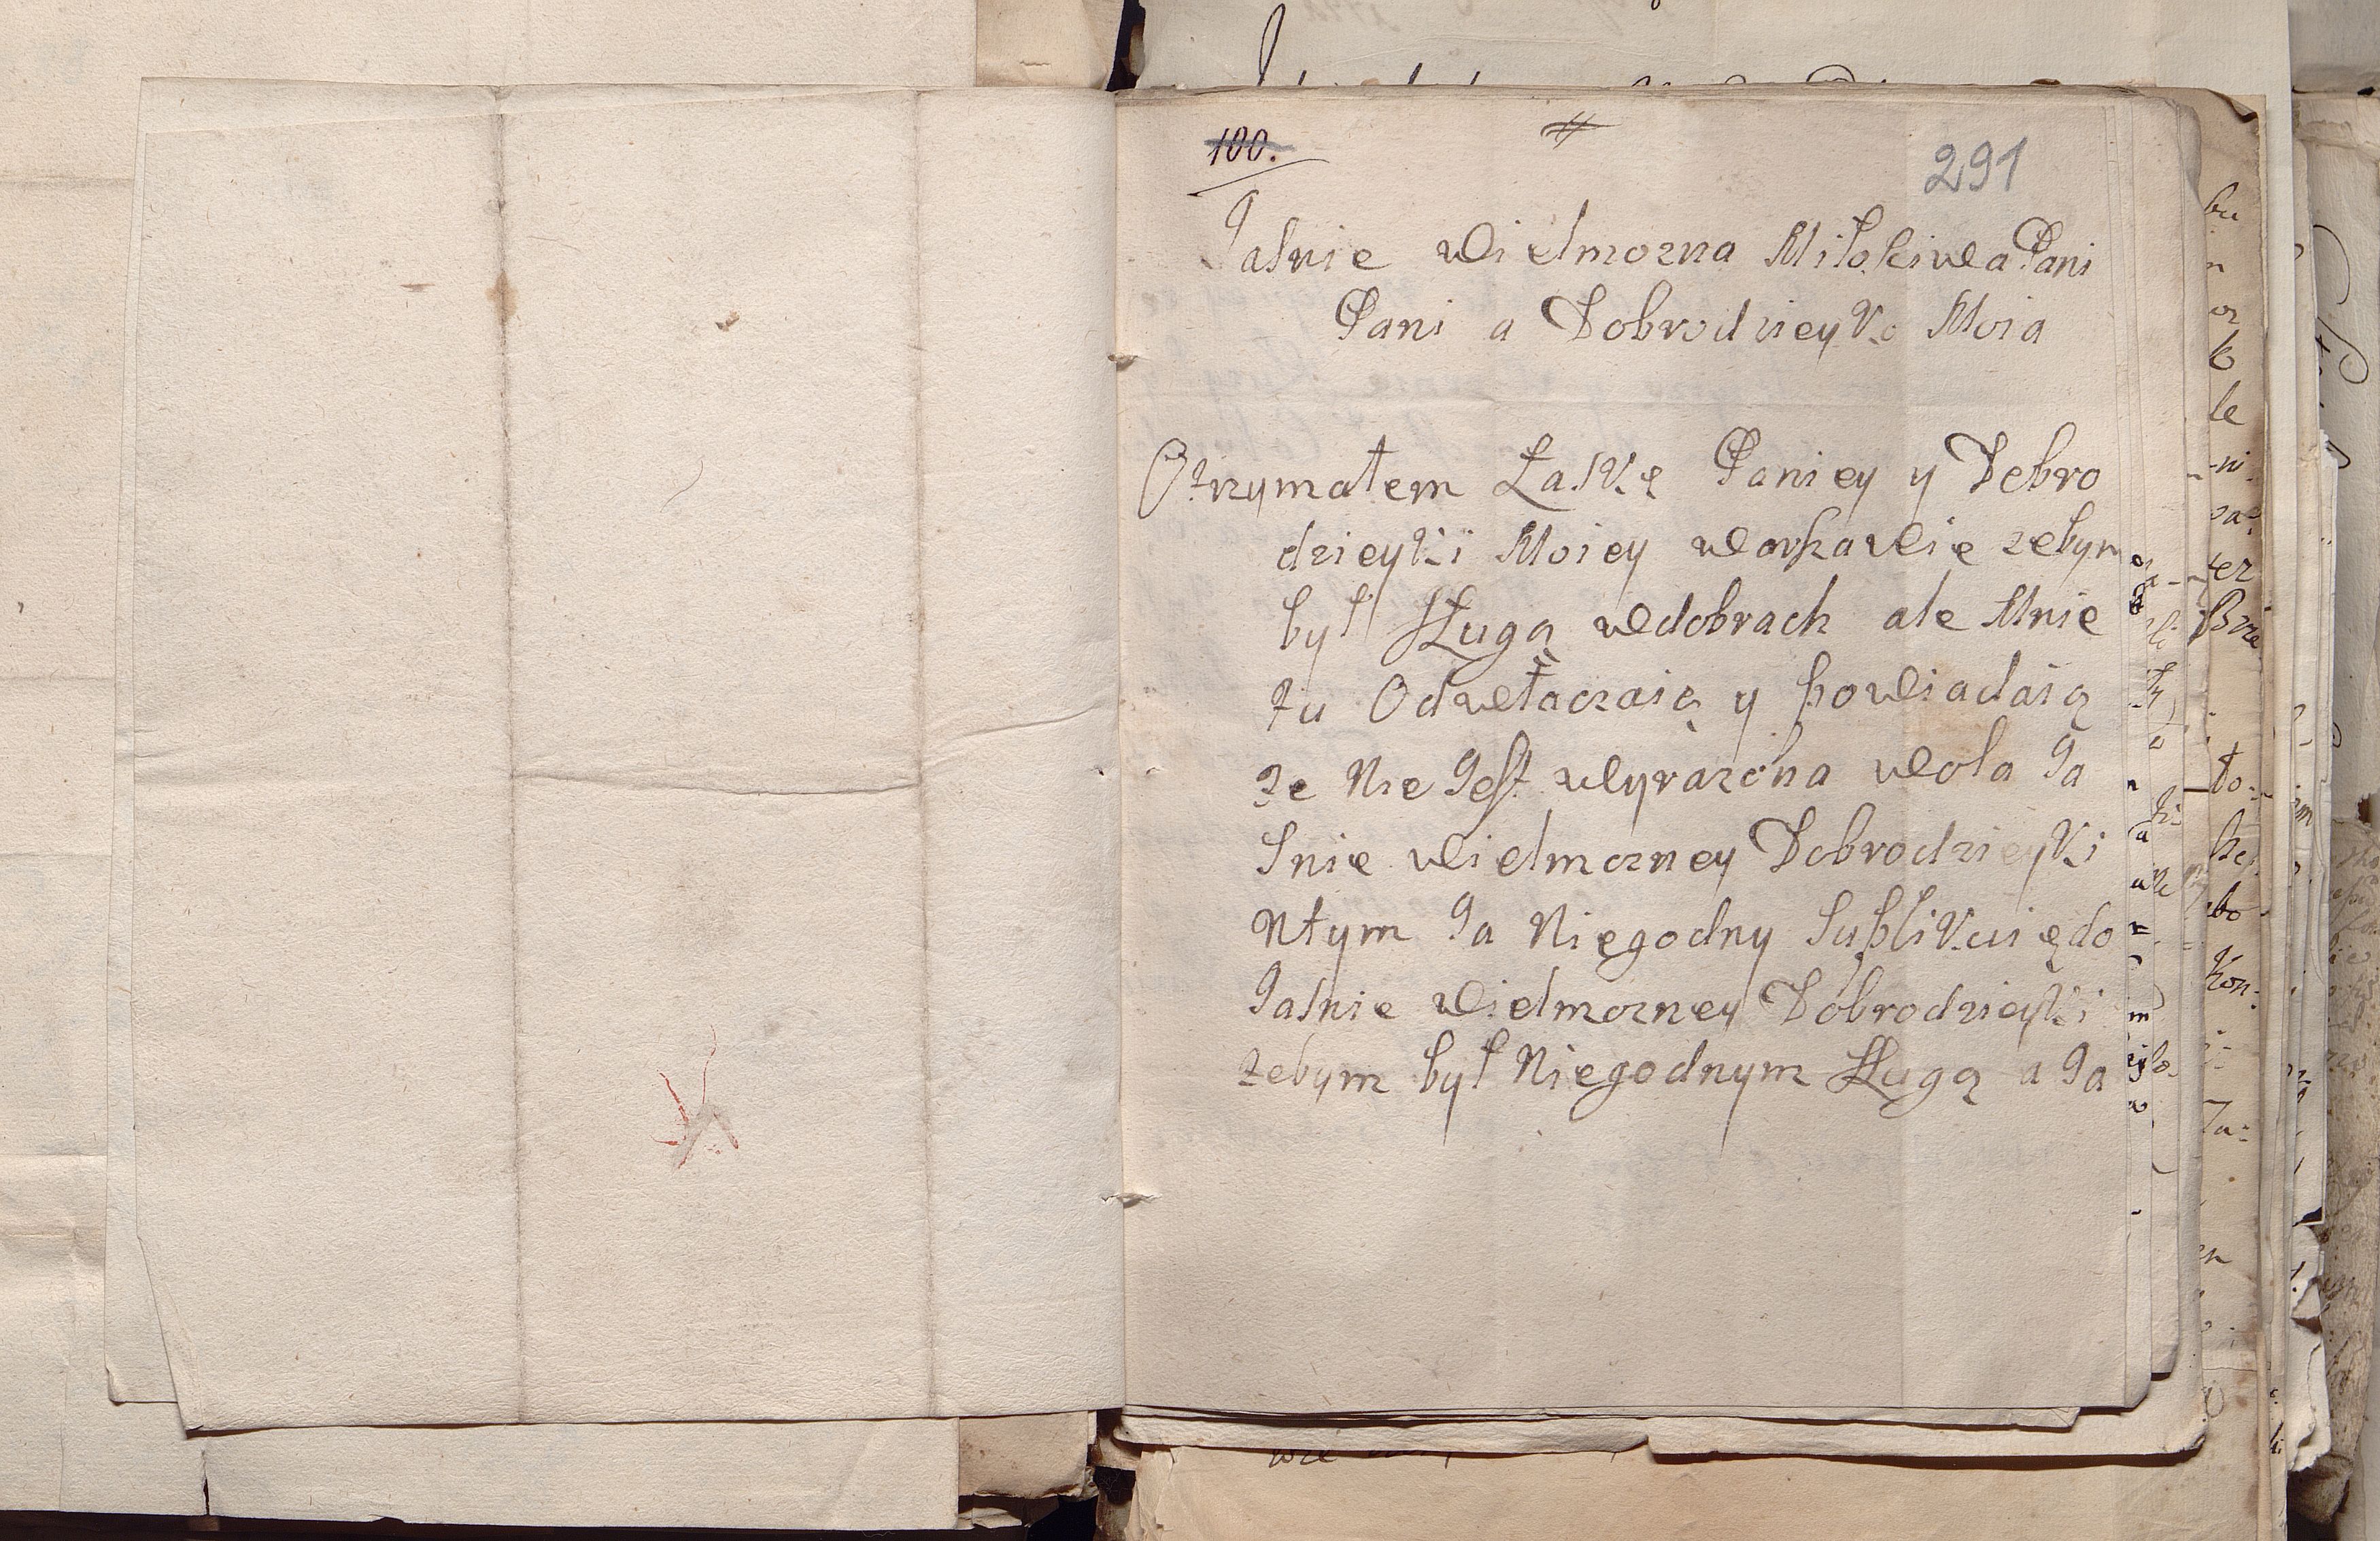 100.
291
Jasnie Wielmozna Miłosciwa Pani
Pani a Dobrodzieyko Moia
Otrzymałem Łaskę Paniey y Dobro
dzieyki Moiey zebym
był Sługą wdobrach ale Mnie
tu Odwłaczaią y powiadaią
ze Nie Jest wyrazona wola Ja
snie Wielmozney Dobrodzieyki
Ntym Ja Niegodny Suplikuię do
Jasnie Wielmozney Dobrodzieyki
zebym był Niegodnym Sługą a Ja